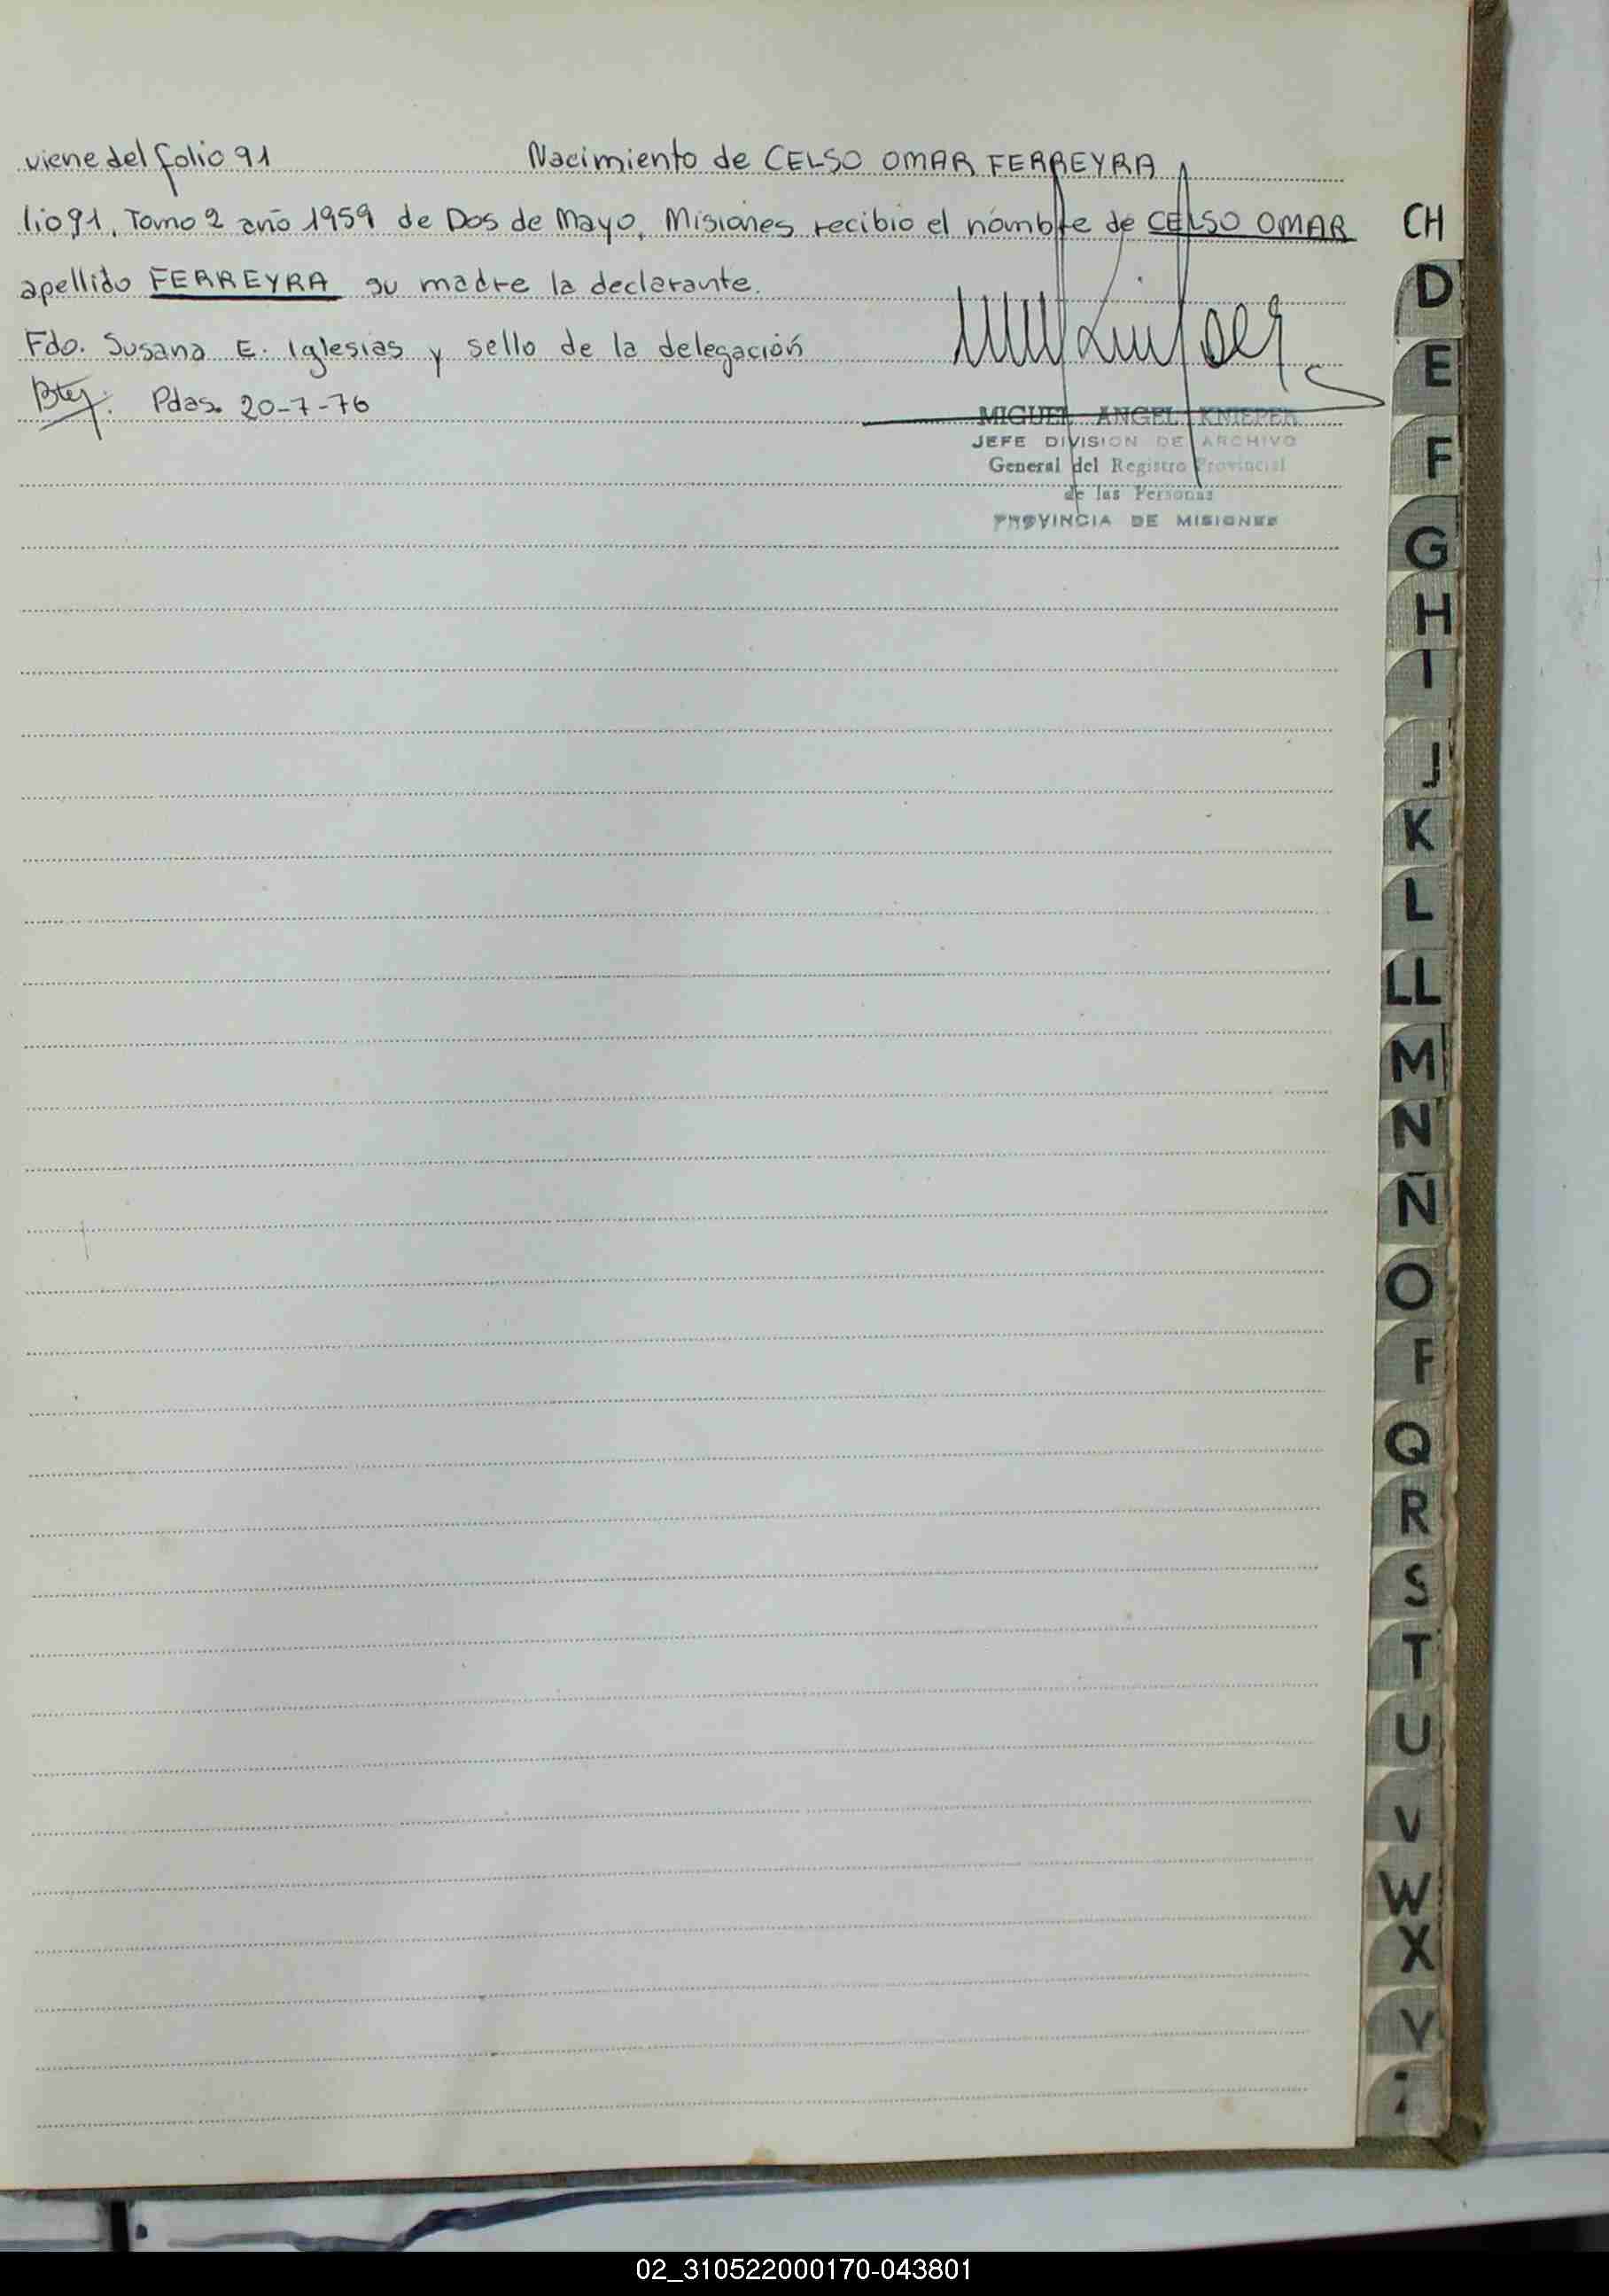 viene del folio 91 Nacimiento de CELSO OMAR FERREYRA
lio 91, Tomo 2 año 1959 de Dos de Mayo, Misiones recibio el nombre de CELSO OMAR
apellido FERREYRA su madre la declarante.
Fdo. Susana E. Iglesias y sello de la delegación
Pdas. 20-7-76
MIGUEL ANGEL KNIEPER
JEFE DIVISION DE ARCHIVO
General del Registro Provincial
de las Personas
PROVINCIA DE MISIONES
CH
D
E
F
G
H
I
J
K
L
LL
M
N
Ñ
O
P
Q
R
S
T
U
V
W
X
Y
Z
02_310522000170-043801